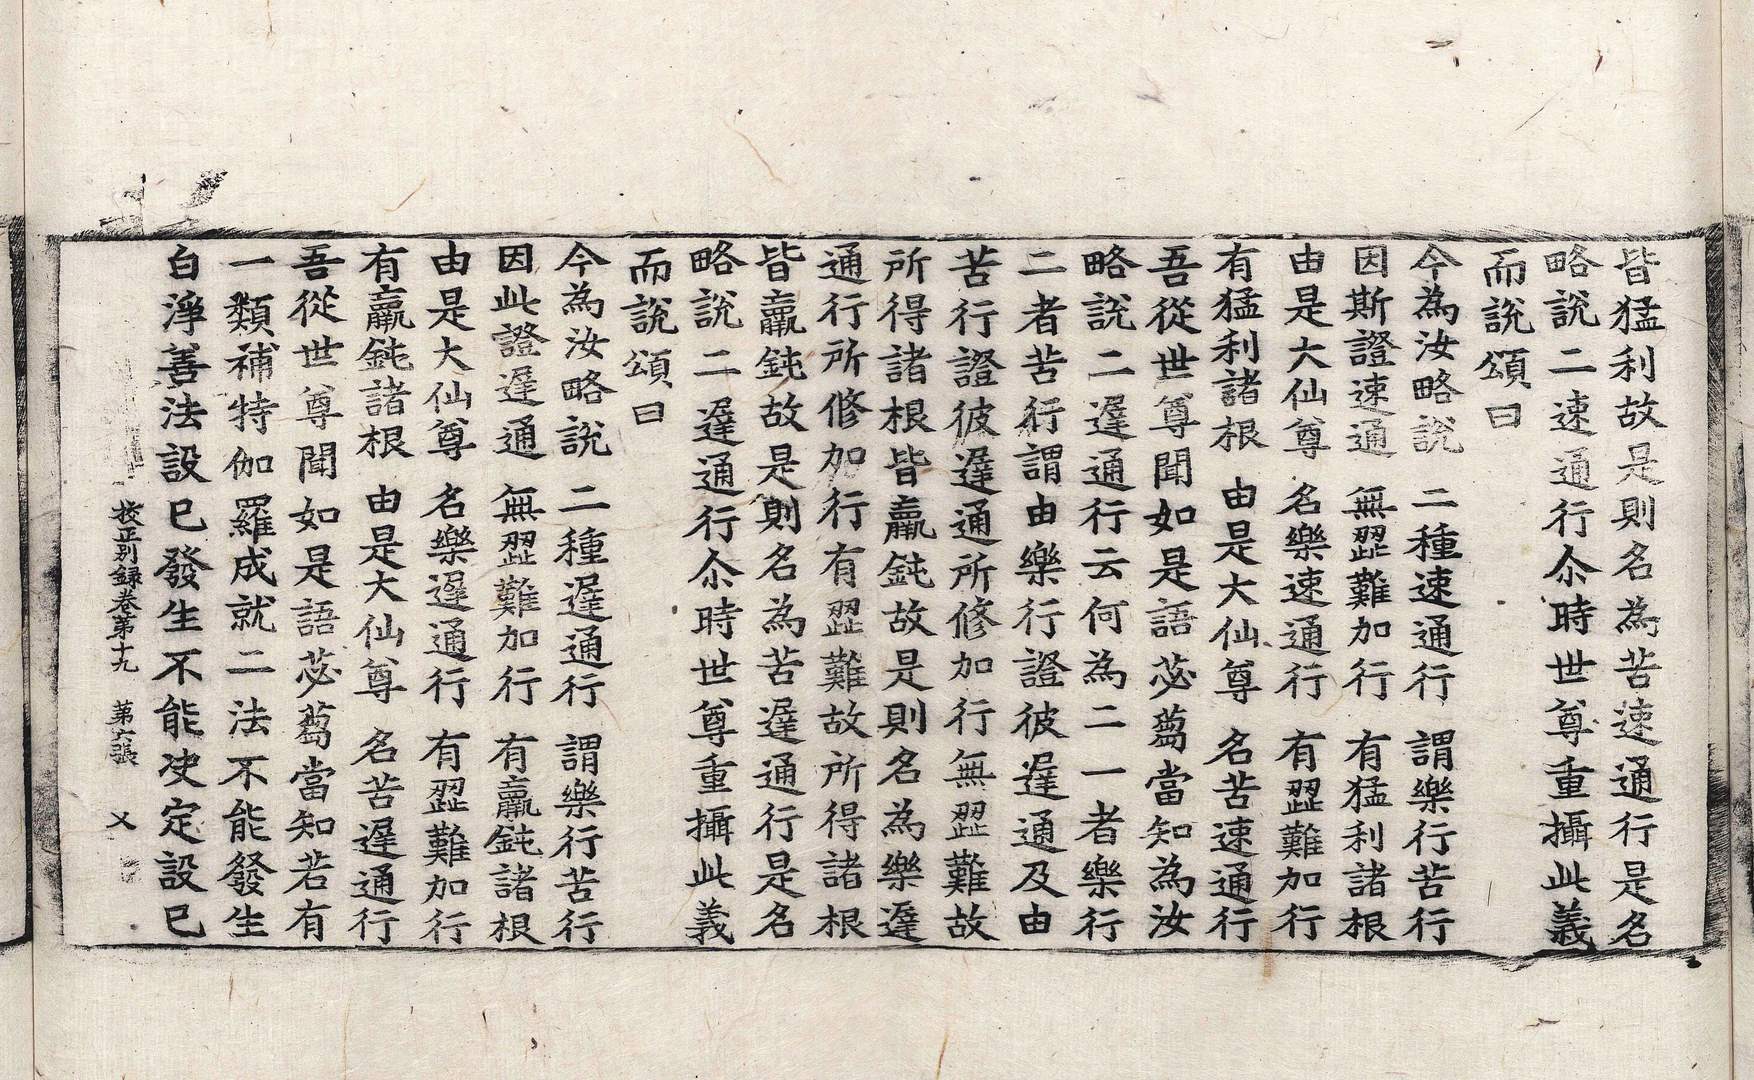 皆猛利故是則名為苦速通行是名
略說二速通行尒時世尊重攝此義
而說頌曰
今為汝略說　二種速通行　謂樂行苦行
因斯證速通　無澀難加行　有猛利諸根
由是大仙尊　名樂速通行　有澀難加行
有猛利諸根　由是大仙尊　名苦速通行
吾從世尊聞如是語苾蒭當知為汝
略說二遲通行云何為二一者樂行
二者苦行謂由樂行證彼遲通及由
苦行證彼遲通所修加行無澀難故
所得諸根皆羸鈍故是則名為樂遲
通行所修加行有澀難故所得諸根
皆羸鈍故是則名為苦遲通行是名
略說二遲通行尒時世尊重攝此義
而說頌曰
今為汝略說　二種遲通行　謂樂行苦行
因此證遲通　無澀難加行　有羸鈍諸根
由是大仙尊　名樂遲通行　有澀難加行
有羸鈍諸根　由是大仙尊　名苦遲通行
吾從世尊聞如是語苾蒭當知若有
一類補特伽羅成就二法不能發生
白淨善法設已發生不能決定設已
校正別錄卷第十九　第六張　乂